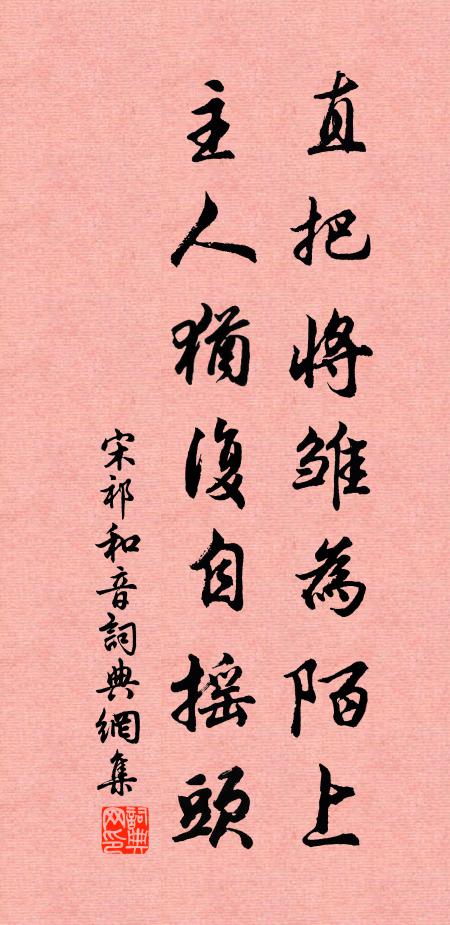 直把將雛為陌上
主人猶復自搖頭
宋祁和音詞典網集
詞典
网印